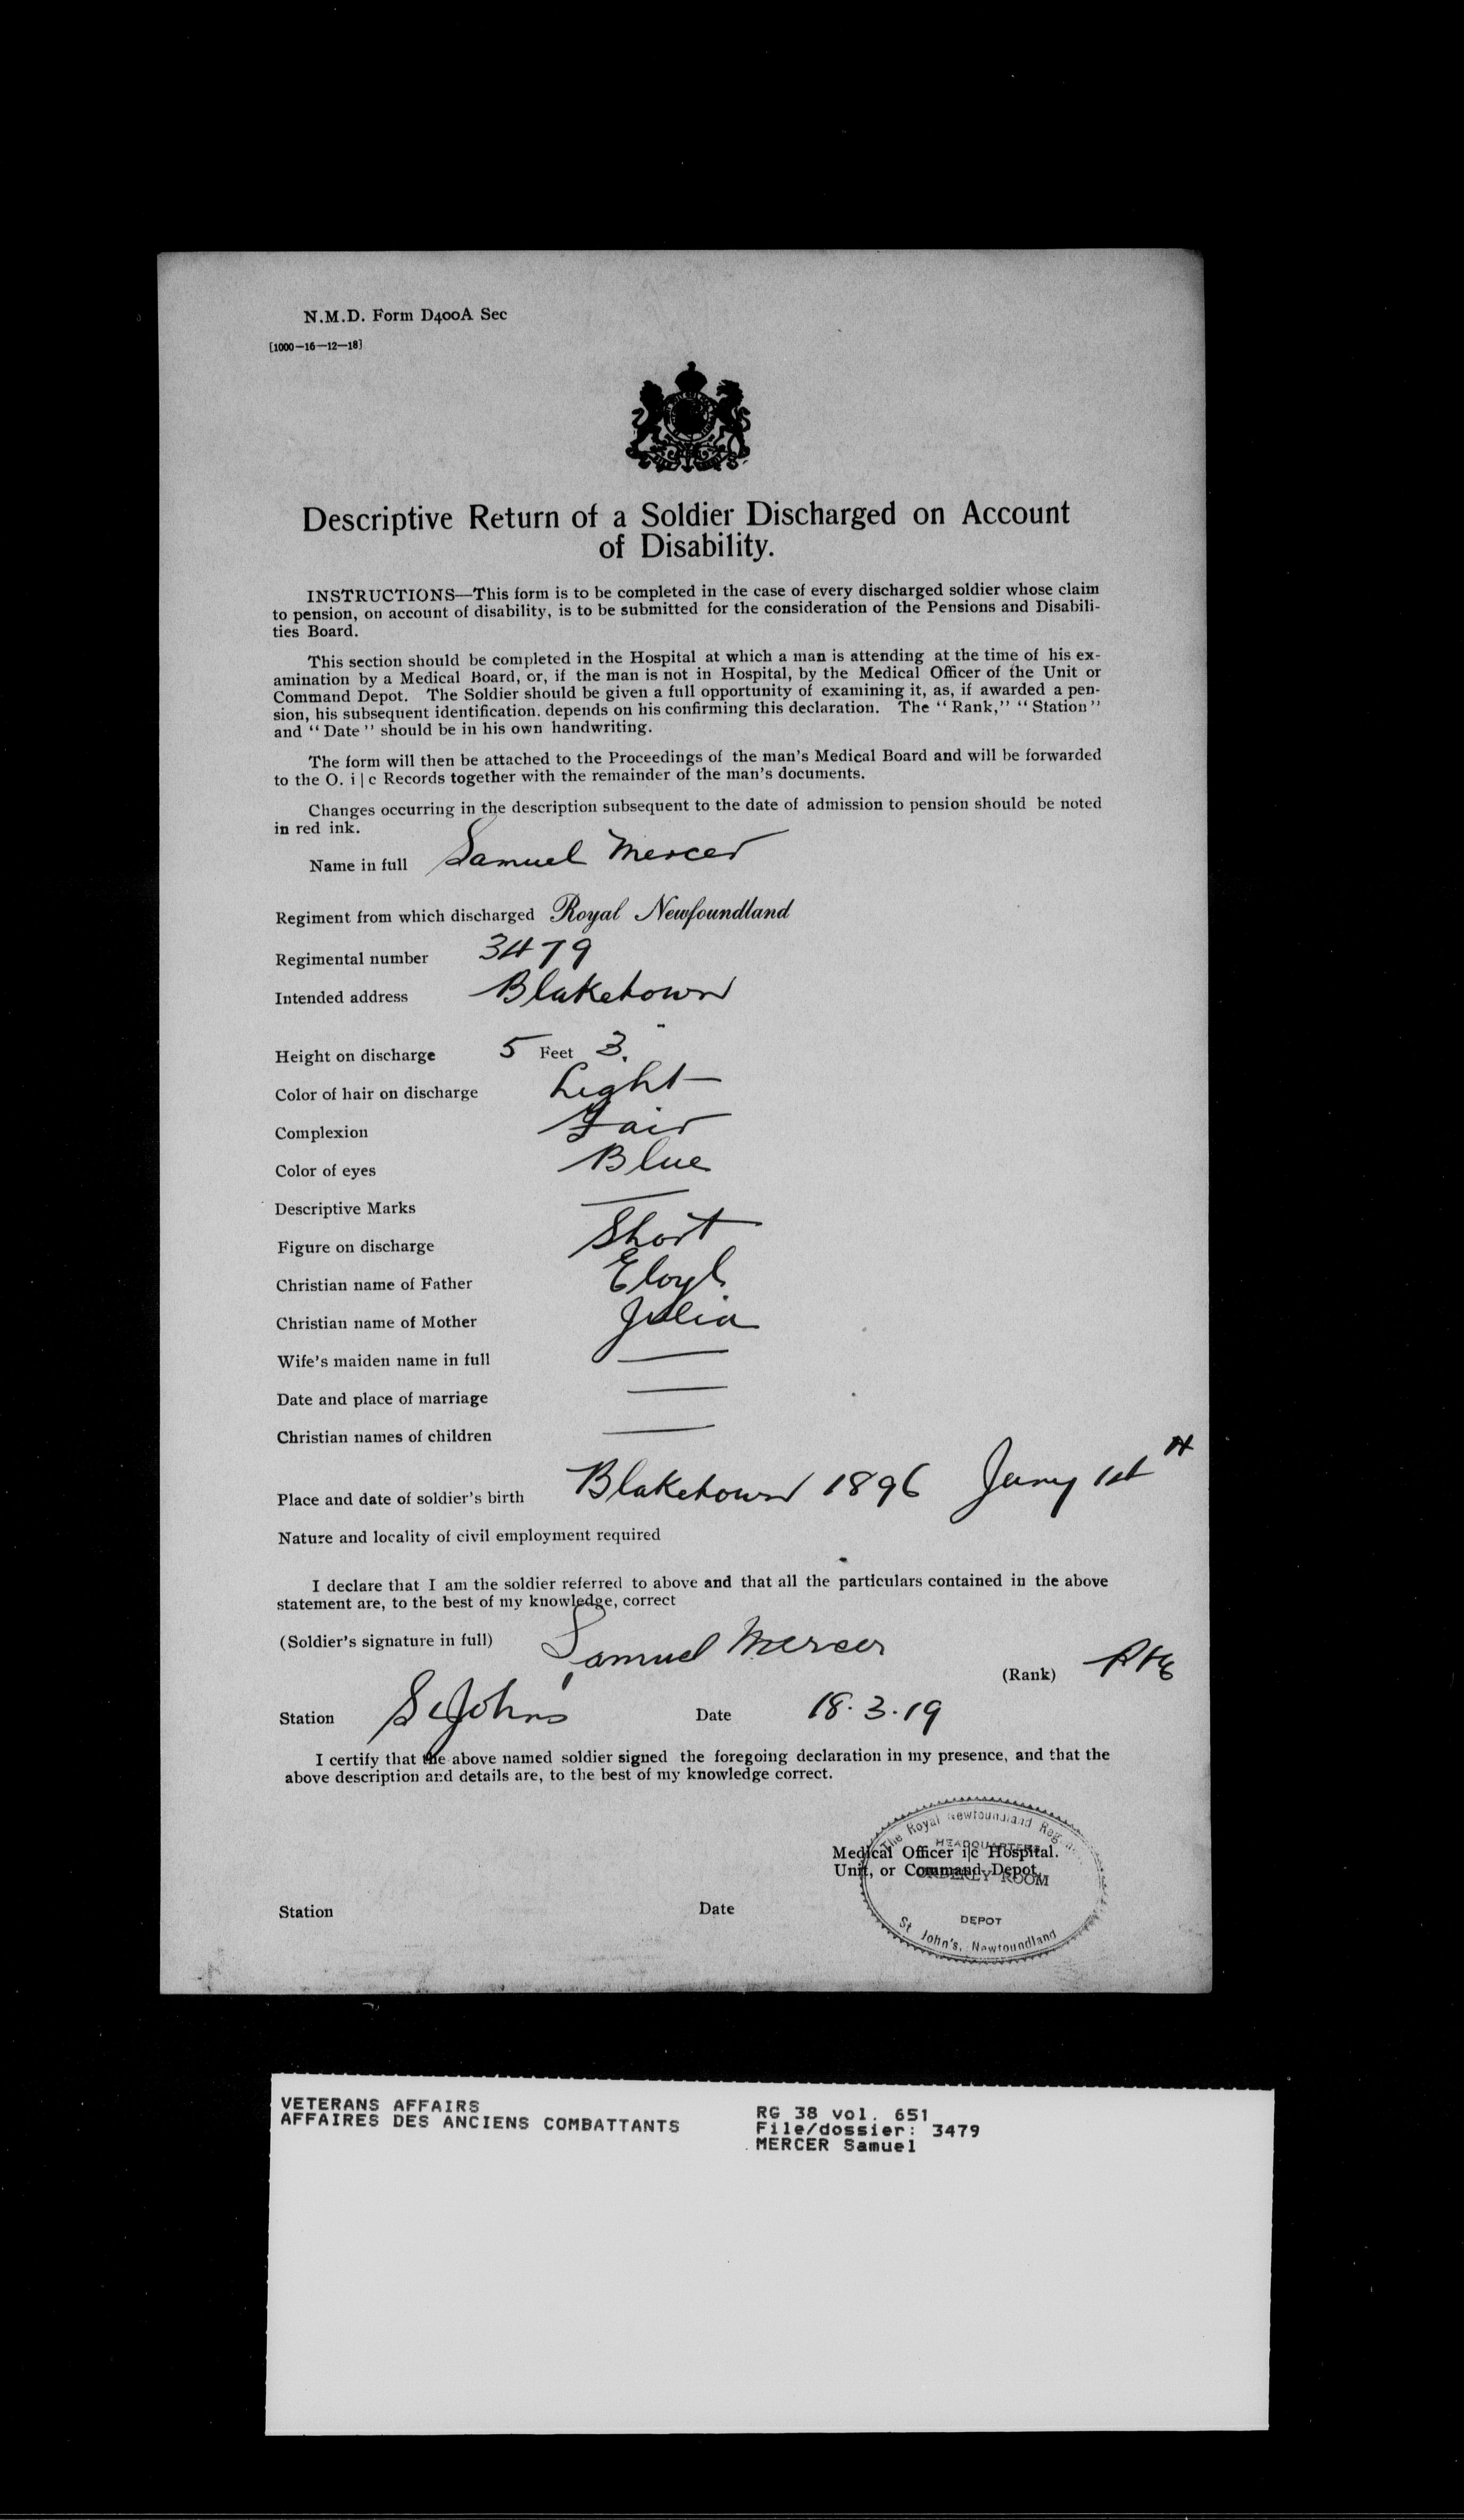 N.M.D. Form D400A Sec
[1000—16—12—18]
Descriptive Return of a Soldier Discharged on Account
of Disability.
INSTRUCTIONS—This form is to be completed in the case of every discharged soldier whose claim
to pension, on account of disability, is to be submitted for the consideration of the Pensions and Disabili-
ties Board.
This section should be completed in the Hospital at which a man is attending at the time of his ex-
amination by a Medical Board, or, if the man is not in Hospital, by the Medical Officer of the Unit or
Command Depot. The Soldier should be given a full opportunity of examining it, as, if awarded a pen-
sion, his subsequent identification. depends on his confirming this declaration. The "Rank," "Station"
and "Date" should be in his own handwriting.
The form will then be attached to the Proceedings of the man's Medical Board and will be forwarded
to the O. i|c Records together with the remainder of the man's documents.
Changes occurring in the description subsequent to the date of admission to pension should be noted
in red ink.
Name in full Samuel Mercer
Regiment from which discharged Royal Newfoundland
Regimental number 3479
Intended address Blaketown
Height on discharge 5 Feet 3"
Color of hair on discharge Light
Complexion Fair
Color of eyes Blue
Descriptive Marks —
Figure on discharge Short
Christian name of Father
Christian name of Mother Julia
Wife's maiden name in full —
Date and place of marriage —
Christian names of children —
Place and date of soldier's birth Blaketown 1896 Jany 1st
Nature and locality of civil employment required
I declare that I am the soldier referred to above and that all the particulars contained in the above
statement are, to the best of my knowledge, correct
(Soldier's signature in full) Samuel Mercer
(Rank) Pte
Station St John's Date 18.3.19
I certify that the above named soldier signed the foregoing declaration in my presence, and that the
above description and details are, to the best of my knowledge correct.
The Royal Newfoundland
HEADQUARTERS
Medical Officer i|c Hospital.
Unit, or Command Depot.
ORDERLY ROOM
Station Date
DEPOT
St John's, Newfoundland
VETERANS AFFAIRS
AFFAIRES DES ANCIENS COMBATTANTS
RG 38 vol. 651
File/dossier: 3479
MERCER Samuel